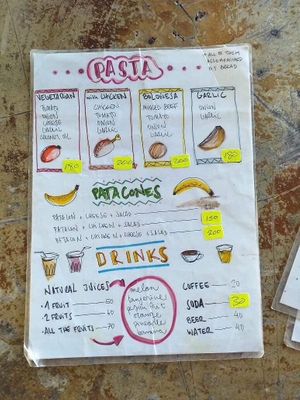 PASTA
* ALL OF THEM
ACCOMPANIED
BY BREAD
VEGETARIAN
TOMATO
ONION
CHEESE
GARLIC
180
with CHICKEN
CHICKEN
TOMATO
ONION
GARLIC
200
BOLONESA
MINCED BEEF
TOMATO
ONION
GARLIC
200
GARLIC
ONION
GARLIC
180
PATACONES
PATACON + CHEESE + SALAD
150
PATACON + CHICKEN + SALAD
PATACON + CHICKEN + CHEESE + SALAD
200
DRINKS
NATURAL JUICES
• 1 FRUIT 50
• 2 FRUITS 60
• ALL THE FRUITS 70
melon
tangerine
passion fruit
orange
pineapple
banana
COFFEE 20
SODA 30
BEER 40
WATER 40